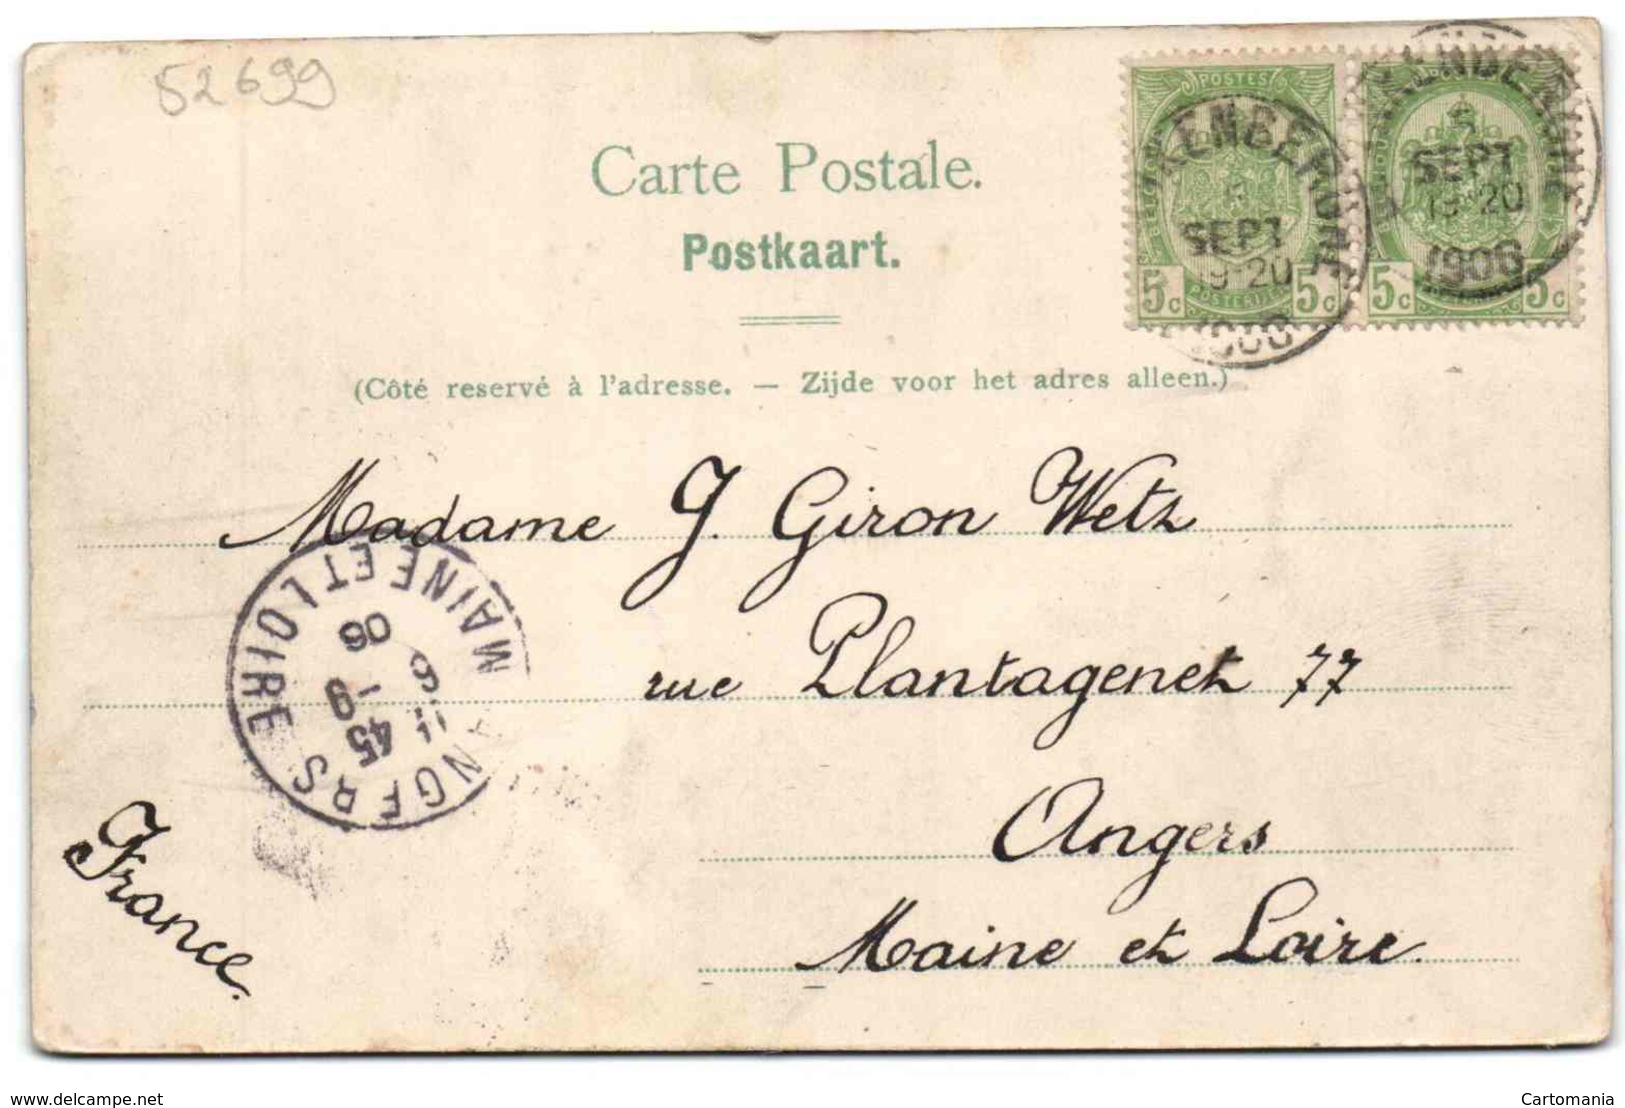 52699
Carte Postale.
Postkaart.
(Côté reservé à l'adresse. — Zijde voor het adres alleen.)
POSTES
5c 5c
POSTERIJEN
SEPT
19-20
5c 5c
5
SEPT
19-20
1906
Madame J. Giron Wetz
rue Plantagenet 77
Angers
Maine et Loire.
France.
ANGERS
MAINE ET LOIRE
45
6 - 9
06
www.delcampe.net
Cartomania